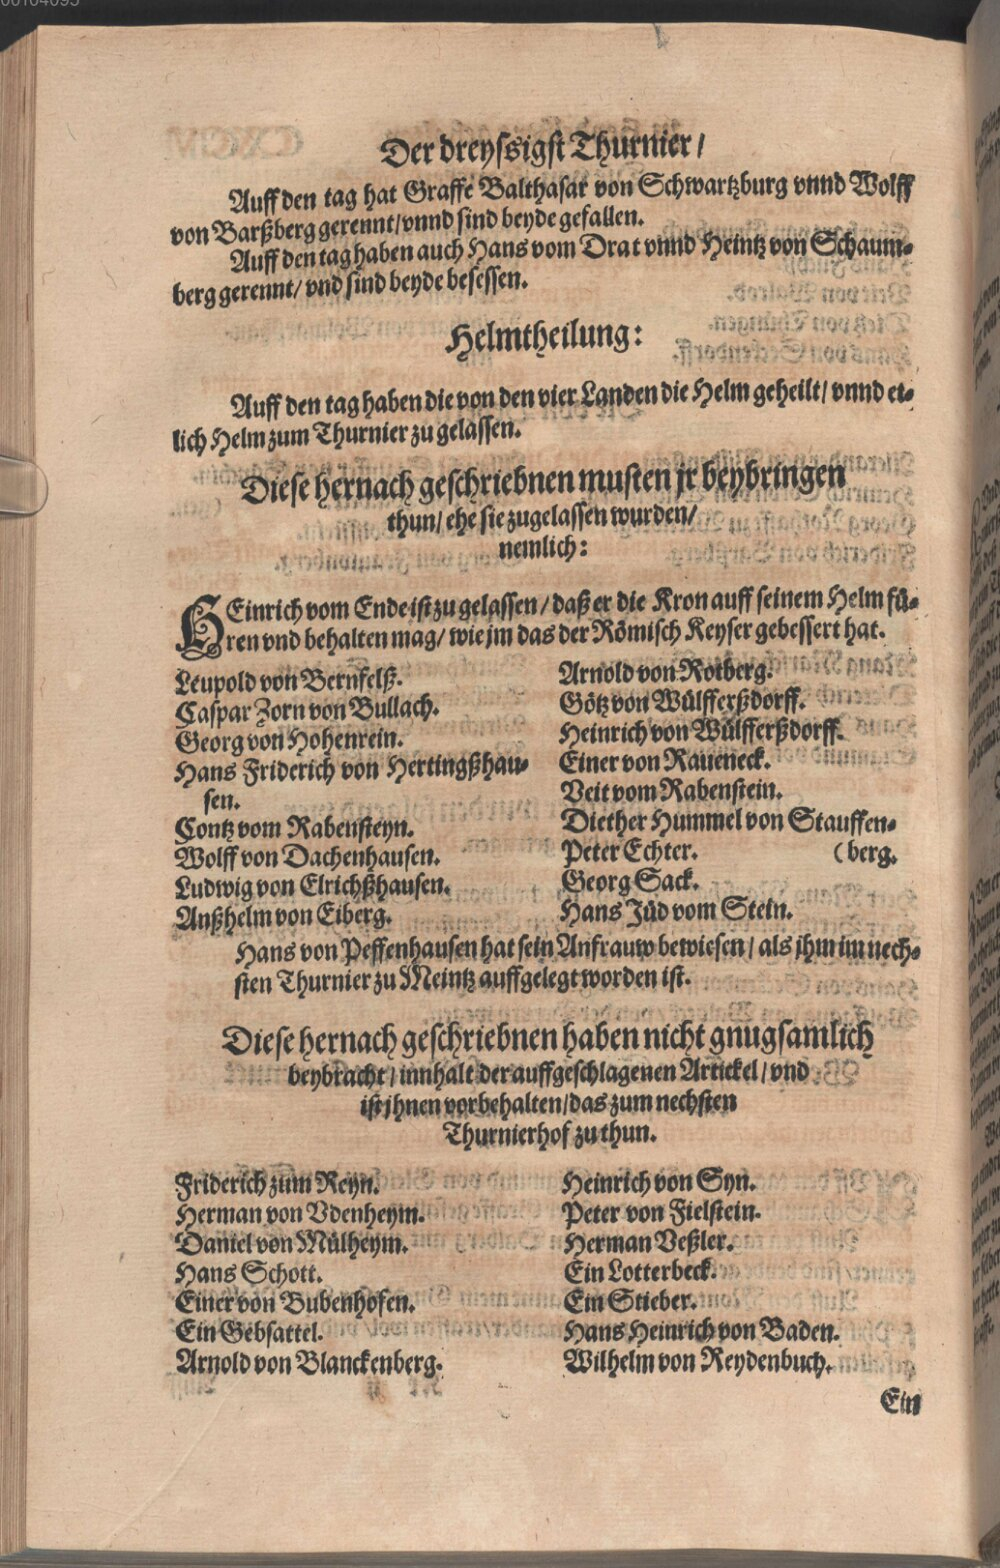 Der dreyssigst Thurnier/
Auff den tag hat Graffe Balthasar von Schwartzburg vnnd Wolff
von Barßberg gerennt/vnnd sind beyde gefallen.
Auff den tag haben auch Hans vom Drat vnnd Heintz von Schaum-
berg gerennt/ vnd sind beyde besessen.
Helmtheilung:
Auff den tag haben die von den vier Landen die Helm geheilt/ vnnd et-
lich Helm zum Thurnier zu gelassen.
Diese hernach geschriebnen musten jr beybringen
thun/ ehe sie zugelassen wurden/
nemlich:
HEinrich vom Ende ist zu gelassen/ daß er die Kron auff seinem Helm fü-
ren vnd behalten mag/ wie jm das der Römisch Keyser gebessert hat.
Leupold von Bernfelß.
Caspar Zorn von Bullach.
Georg von Hohenrein.
Hans Friderich von Hertingßhau-
sen.
Contz vom Rabensteyn.
Wolff von Dachenhausen.
Ludwig von Elrichßhausen.
Anßhelm von Eiberg.
Arnold von Rotberg.
Götz von Wülfferßdorff.
Heinrich von Wülfferßdorff.
Einer von Raueneck.
Veit vom Rabenstein.
Diether Hummel von Stauffen-
Peter Echter. (berg.
Georg Sack.
Hans Jüd vom Stein.
Hans von Peffenhausen hat sein Anfrauw bewiesen/ als jhm im nech-
sten Thurnier zu Meintz auffgelegt worden ist.
Diese hernach geschriebnen haben nicht gnugsamlich
beybracht/ innhalt der auffgeschlagenen Artickel/ vnd
ist jhnen vorbehalten/das zum nechsten
Thurnierhof zu thun.
Friderich zum Reyn.
Herman von Vdenheym.
Daniel von Mülheym.
Hans Schott.
Einer von Bubenhofen.
Ein Gebsattel.
Arnold von Blanckenberg.
Heinrich von Syn.
Peter von Fielstein.
Herman Veßler.
Ein Lotterbeck.
Ein Stieber.
Hans Heinrich von Baden.
Wilhelm von Reydenbuch.
Ein